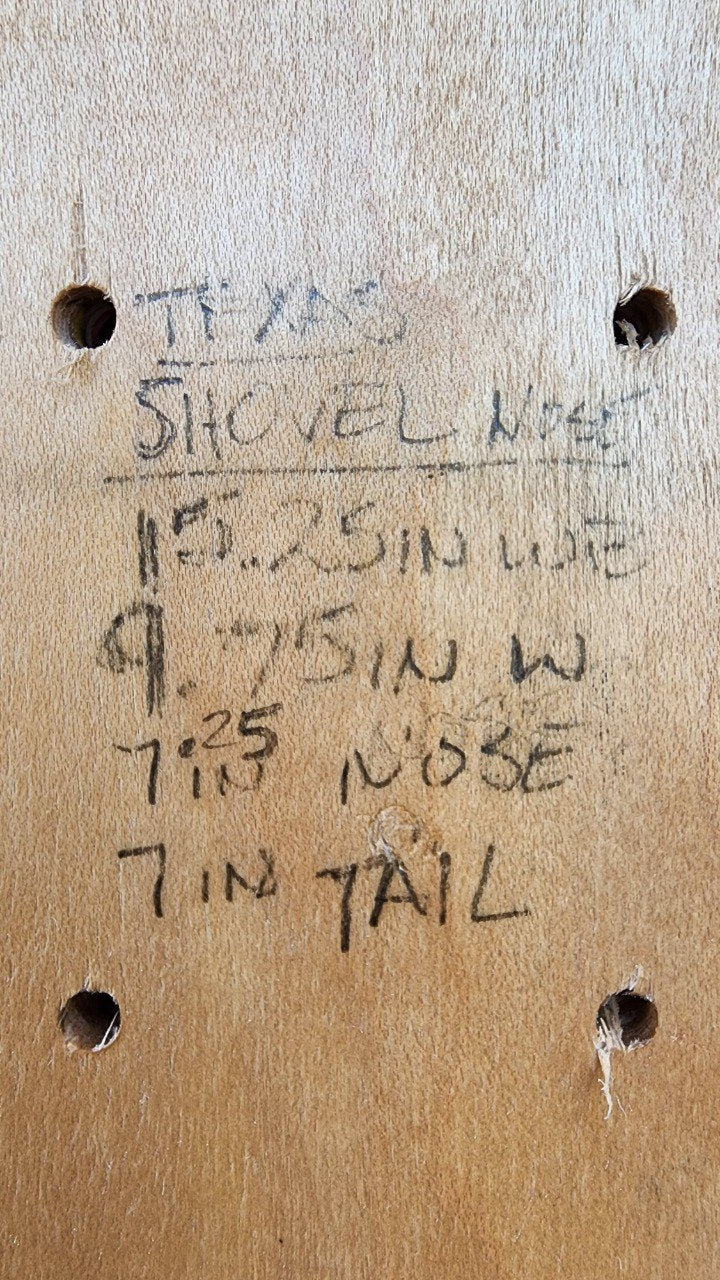 TEXAS
SHOVEL NOSE
15.25IN WB
9.75IN W
7.25IN NOSE
7IN TAIL